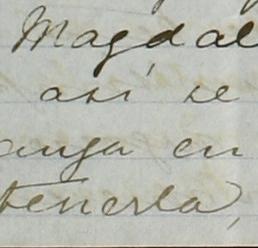 Magdal
así se
anga en
tenerla,